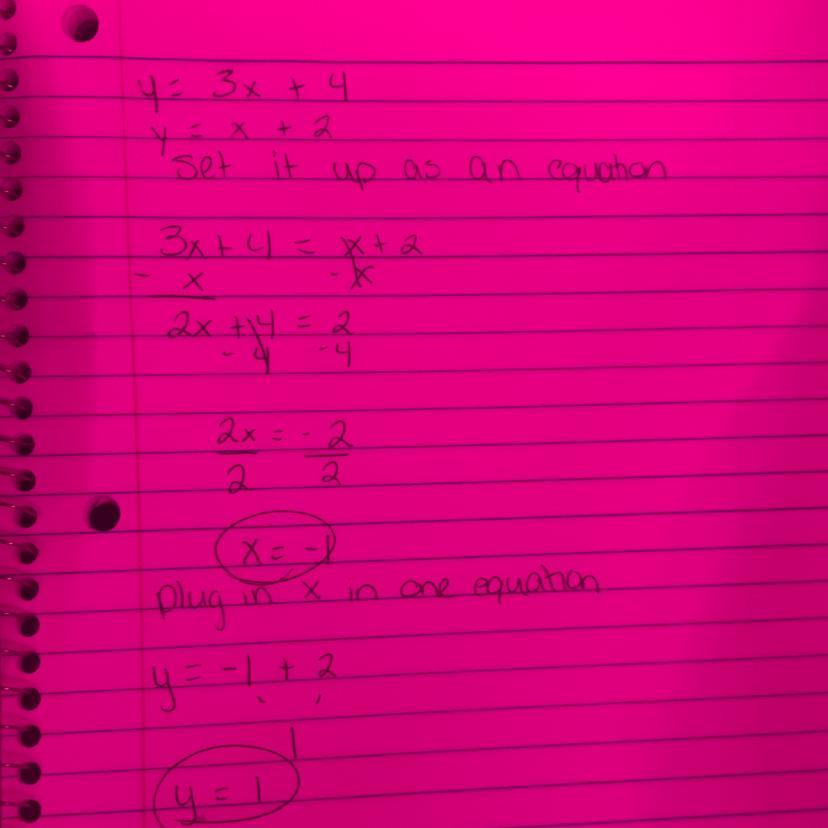 y = 3x + 4
y = x + 2
Set it up as an equation
3x + 4 = x + 2
- x - x
2x + 4 = 2
- 4 - 4
2x = - 2
2 2
x = -1
Plug in x in one equation
y = -1 + 2
1
y = 1